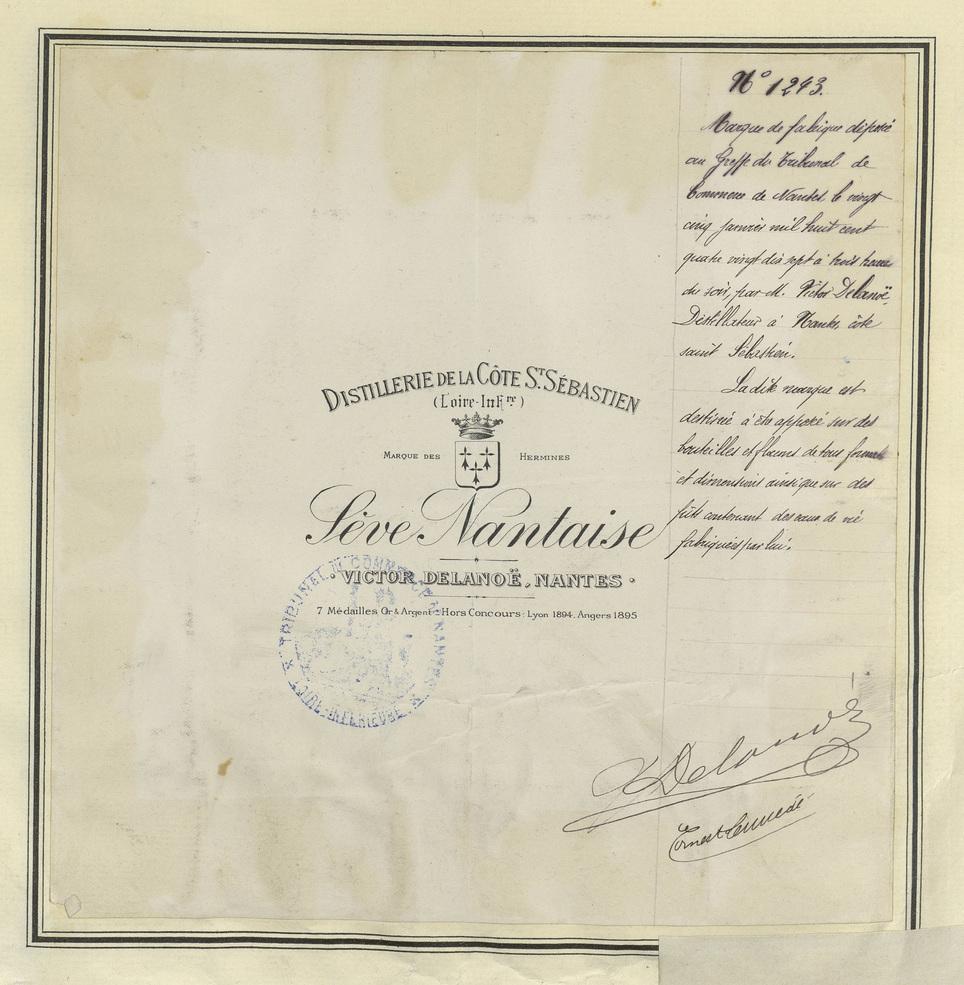 DISTILLERIE DE LA CÔTE ST. SÉBASTIEN
(Loire-Infre)
MARQUE DES HERMINES
Sève Nantaise
· VICTOR DELANOË, NANTES ·
7 Médailles Or & Argent : Hors Concours : Lyon 1894, Angers 1895
TRIBUNAL DE COMMERCE DE NANTES
LOIRE-INFÉRIEURE
N° 1243.
Marque de fabrique déposé
au Greffe du Tribunal de
Commerce de Nantes le vingt
cinq janvier mil huit cent
quatre vingt dix sept à trois heures
du soir, par M. Victor Delanoë,
Distillateur à Nantes, côte
saint Sébastien.
La dite marque est
destinée à être apposé sur des
bouteilles et flacons de tous formats
et dimensions ainsi que sur des
fûts contenant des eaux de vie
fabriquées par lui.
V Delanoë
Ernest